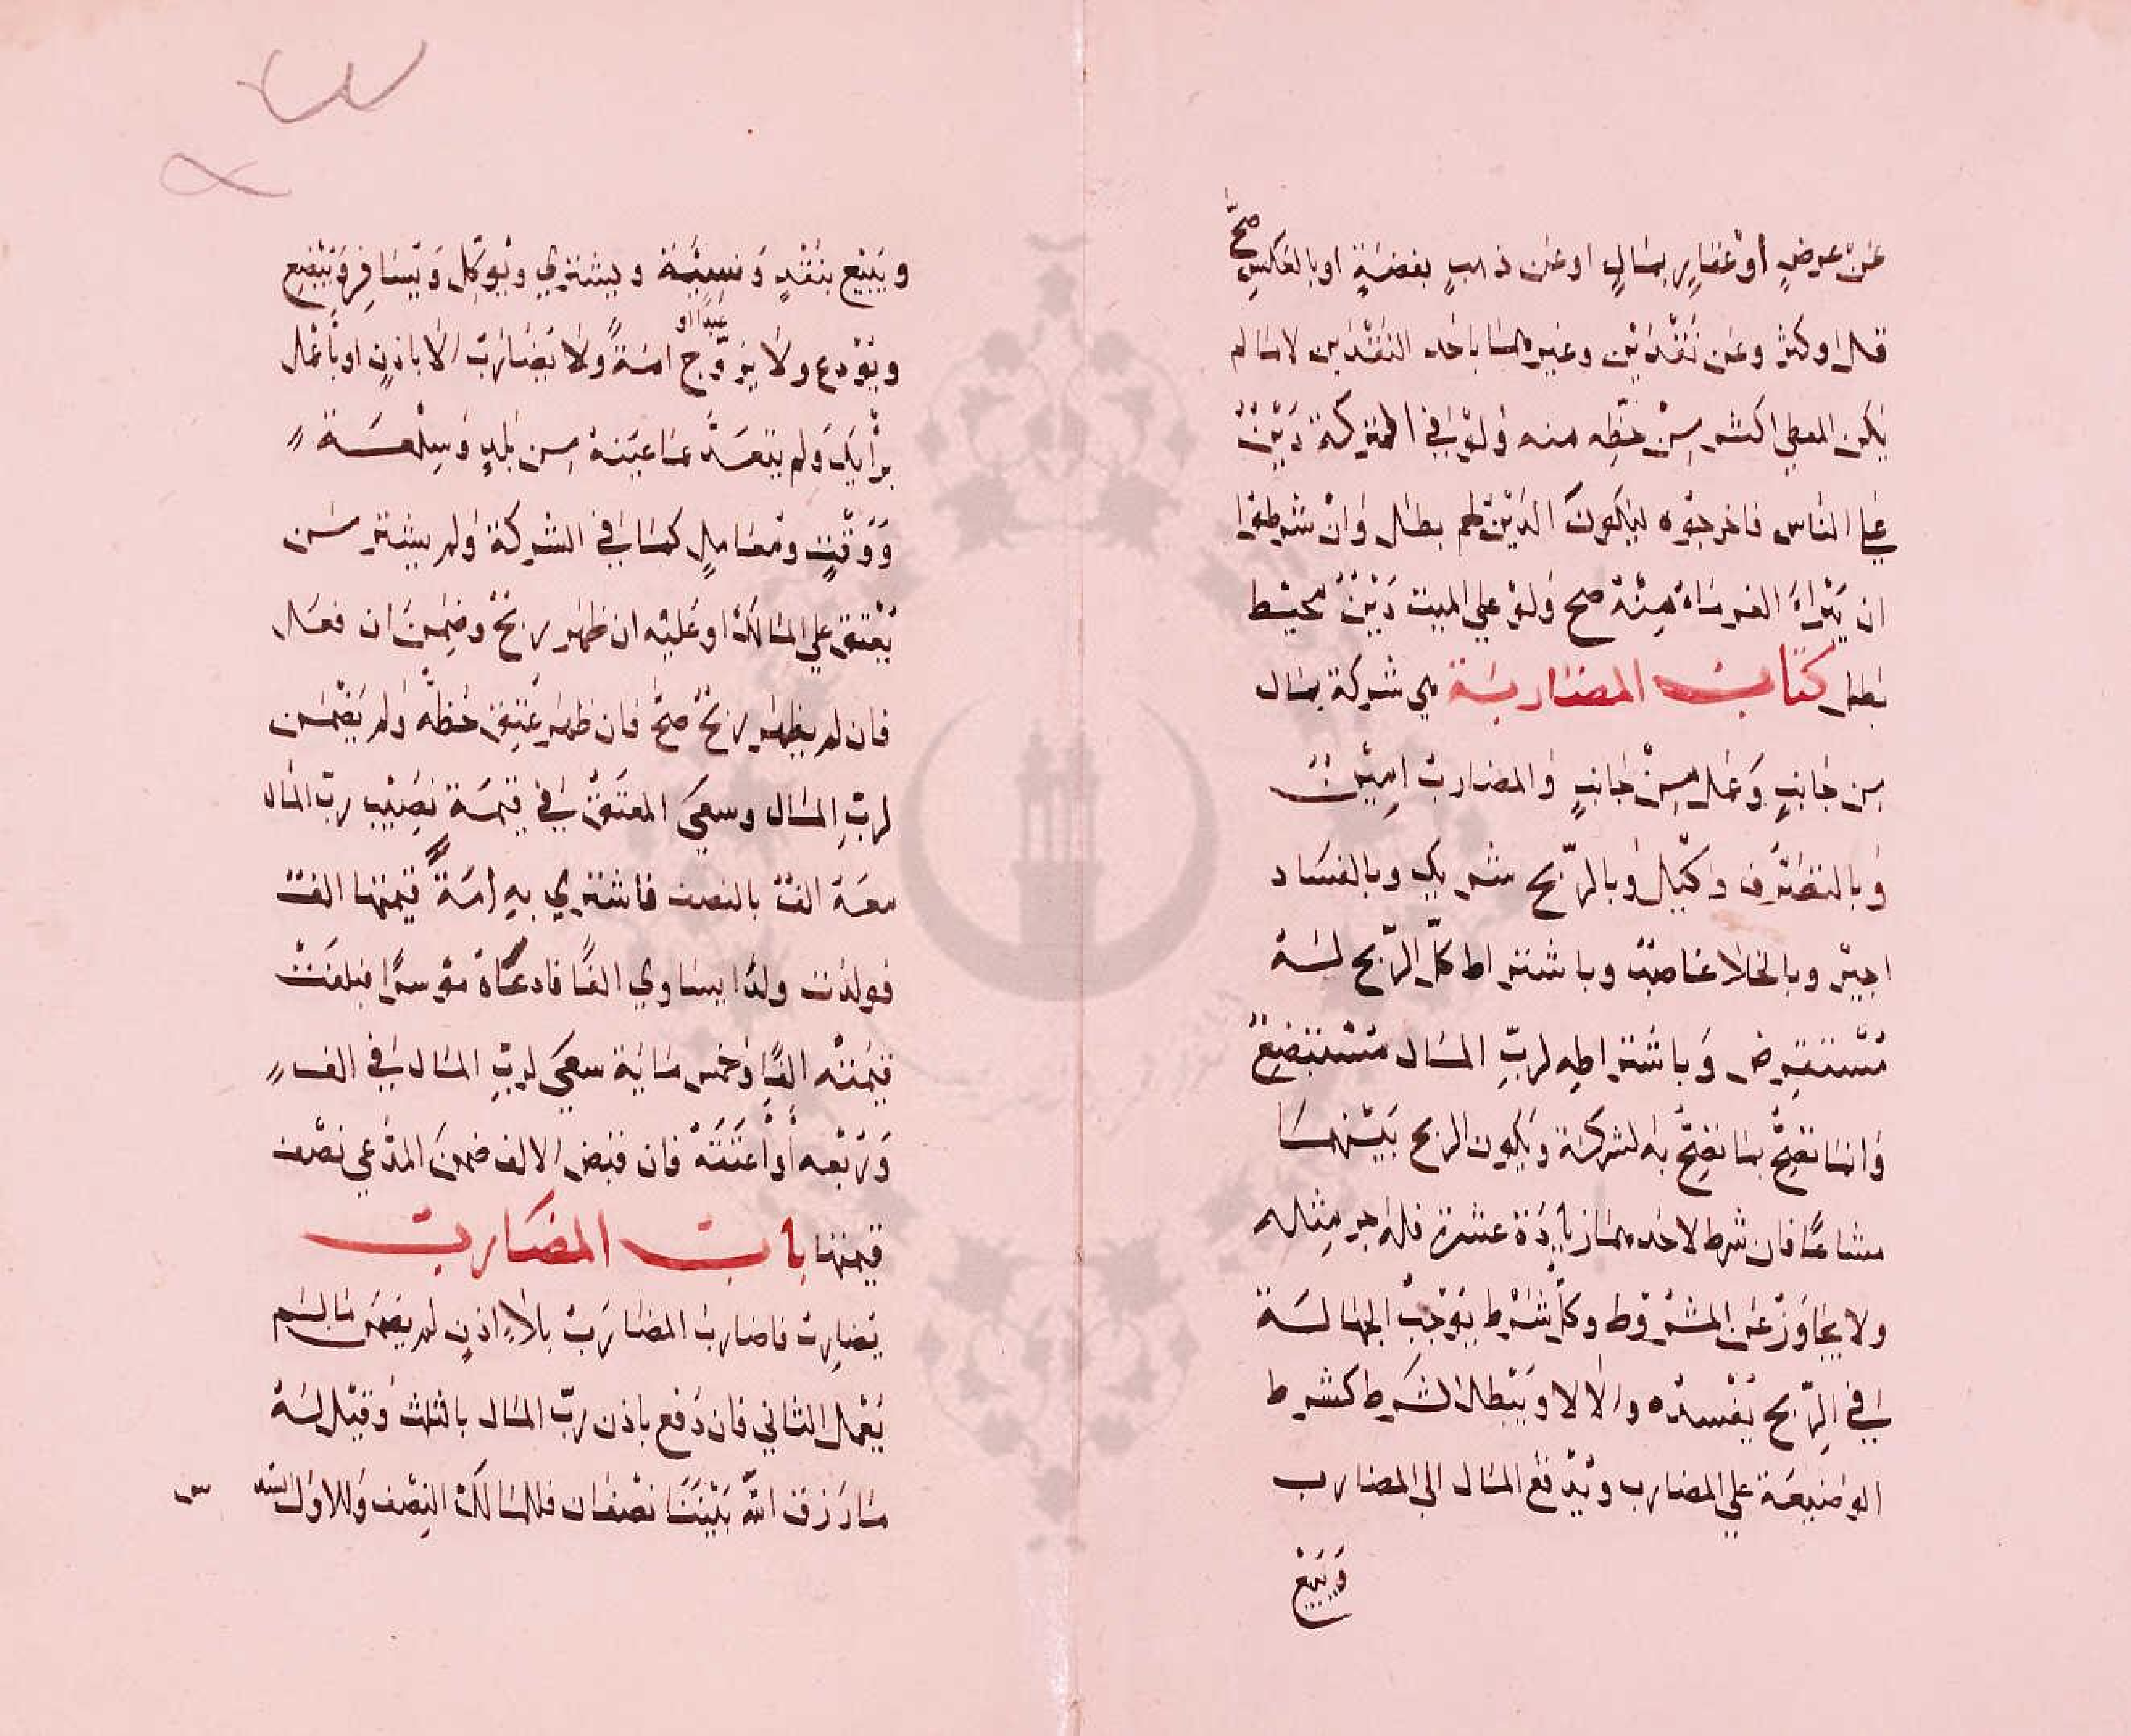 عن عرضٍ أو عقارٍ بمالٍ او عن ذهبٍ بفضةٍ او بالعكس صحّ
قل او كثر وعن نَقْدَيْن وغيرهما باحد النقدين لا ما لم
يكن المعطى اكثر مِنْ حظِّه منه ولوْ في التركة دَيْنٌ
على الناس فاخرجوه ليكونَ الدَيْن لهم بطل وانْ شرطوا
ان يَبْراءَ الغرماء مِنْهُ صح ولوْ على الميت دَيْنٌ محيط
بطل كتاب المضاربة هي شركة بمال
من جانبٍ وَعمل مِنْ جانبٍ والمضارب امِيْنٌ
وبالتصَرّف وكيل وبالرّبح شريك وبالفساد
اجيْر وبالخلاف غاصبٌ وباشتراط كلّ الرّبح له
مُسْتقرِض وَباشتراطِه لربِّ المال مُسْتبضِعٌ
وانما تصِحُّ بما تصِحُّ به الشركة ويكون الربح بَيْنهما
مشاعًا فان شرط لاحدهما زيادة عشرة فله اجر مِثْله
ولا يجاوَزْ عن المشروْط وكلّ شرْط يوْجبُ الجهالة
في الرّبح يُفْسدُه والّا لا وَيَبْطل الشرط كشرط
الوضيعة على المضارب ويُدْفَع المال الى المضارب
وَيَبيْع
ويَبيْع بنقْدٍ وَنسِيْئَة ويشتري ويُوَكِّل وَيسَافِر وَيُبْضِع
ويُوْدع ولا يزوّج عبدًا او امةً ولا يُضارب الا باذنٍ اوباعْمل
برأيكَ ولم يتعدَّ عما عيّنه مِن بلدٍ وَسِلْعَة
وَوَقْتٍ ومُعَامِلٍ كما في الشركة ولم يشتر من
يُعْتق على المالك او عليْه ان ظهر ربحٌ وضمن ان فعل
فان لم يظهر ربحٌ صحّ فان ظهر عُتِق حظّه ولم يَضْمن
لربِّ المال وسعى المعتَقُ في قيمة نصِيْب رب المال
معه الفٌ بالنصف فاشترى بهِ امةً قيمتها الفٌ
فولدت ولدًا يساوي الفًا فادعاهُ موْسرًا فبلغَتْ
قيمتُه الفًا وخمس مائة سعى لربِّ المال في الف
وَربُعه أوْ أعْتَقَهُ فان قبض الالف ضمن المدّعي نصْف
قيمتها باب المضارب
يُضارِب فاضارب المضارَبُ بلا اذنٍ لم يضمن مالم
يَعْمل الثاني فان دَفع باذن ربّ المال بالثلث وقيْل له
مارَزق اللّه بيْننَا نصْفان فللمالك النِصْف وللاول السّدس